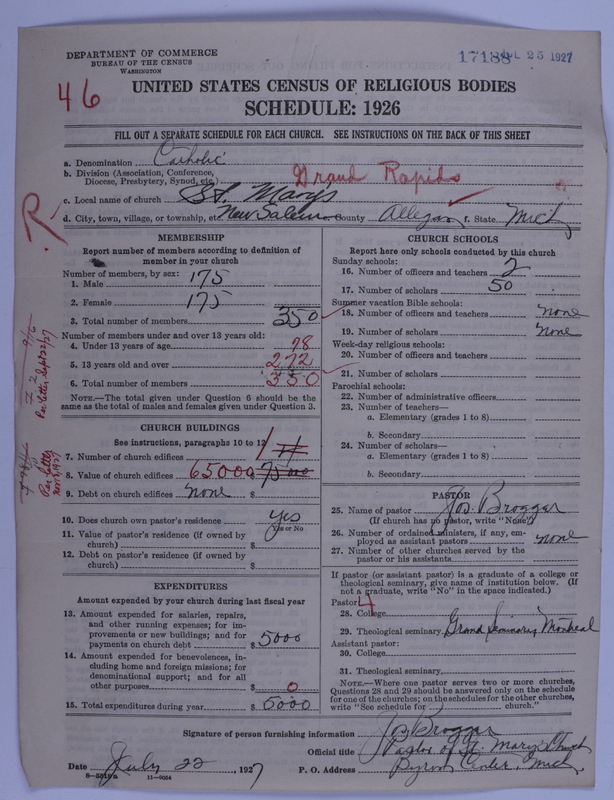 DEPARTMENT OF COMMERCE
BUREAU OF THE CENSUS
WASHINGTON
17188 JUL 25 1927
46
UNITED STATES CENSUS OF RELIGIOUS BODIES
SCHEDULE: 1926
FILL OUT A SEPARATE SCHEDULE FOR EACH CHURCH. SEE INSTRUCTIONS ON THE BACK OF THIS SHEET
a. Denomination Catholic
b. Division (Association, Conference, Diocese, Presbytery, Synod, etc.) Grand Rapids
c. Local name of church St. Mary's
d. City, town, village, or township, etc. New Salem County Allegan f. State Mich
R
MEMBERSHIP
Report number of members according to definition of
member in your church
Number of members, by sex:
1. Male 175
2. Female 175
3. Total number of members 350
Number of members under and over 13 years old:
4. Under 13 years of age 78
5. 13 years old and over 272
6. Total number of members 350
NOTE.—The total given under Question 6 should be the
same as the total of males and females given under Question 3.
Per letter Sept 23/27
CHURCH BUILDINGS
See instructions, paragraphs 10 to 12
7. Number of church edifices 1
8. Value of church edifices 65000 $ 75000
9. Debt on church edifices none $
Per letter
10. Does church own pastor's residence yes
Yes or No
11. Value of pastor's residence (if owned by
church) $
12. Debt on pastor's residence (if owned by
church) $
EXPENDITURES
Amount expended by your church during last fiscal year
13. Amount expended for salaries, repairs,
and other running expenses; for im-
provements or new buildings; and for
payments on church debt $ 5000
14. Amount expended for benevolences, in-
cluding home and foreign missions; for
denominational support; and for all
other purposes $ 0
15. Total expenditures during year $ 5000
CHURCH SCHOOLS
Report here only schools conducted by this church
Sunday schools:
16. Number of officers and teachers 2
17. Number of scholars 50
Summer vacation Bible schools:
18. Number of officers and teachers none
19. Number of scholars none
Week-day religious schools:
20. Number of officers and teachers
21. Number of scholars
Parochial schools:
22. Number of administrative officers
23. Number of teachers—
a. Elementary (grades 1 to 8)
b. Secondary
24. Number of scholars—
a. Elementary (grades 1 to 8)
b. Secondary
PASTOR
25. Name of pastor Jos. Broggar
(If church has no pastor, write "None")
26. Number of ordained ministers, if any, em-
ployed as assistant pastors none
27. Number of other churches served by the
pastor or his assistants
If pastor (or assistant pastor) is a graduate of a college or
theological seminary, give name of institution below. (If
not a graduate, write "No" in the space indicated.)
Pastor: 4
28. College
29. Theological seminary Grand Seminary Montreal
Assistant pastor:
30. College
31. Theological seminary
NOTE.—Where one pastor serves two or more churches,
Questions 28 and 29 should be answered only on the schedule
for one of the churches; on the schedules for the other churches,
write "See schedule for church."
Signature of person furnishing information Jos Broggar
Official title Pastor of St. Mary's Church
Date July 22, 1927 P. O. Address Byron Center, Mich
8—5319a 11—9064